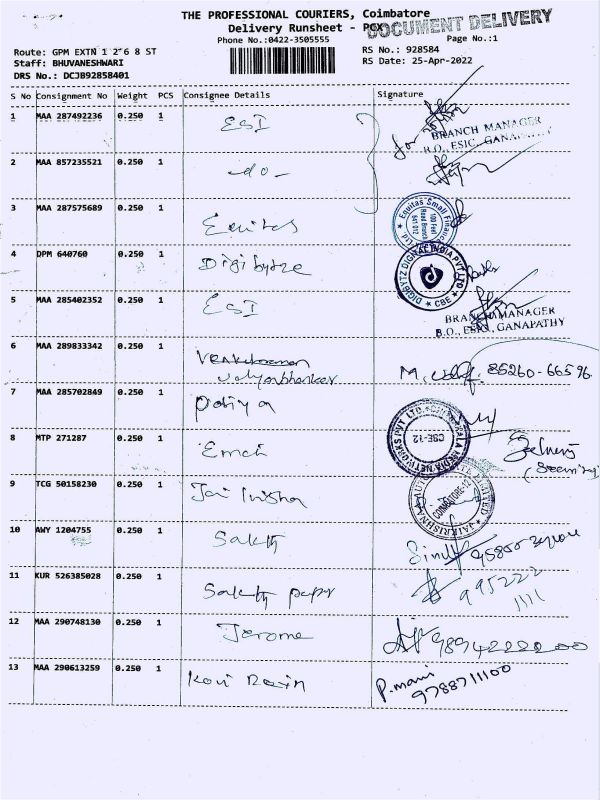 THE PROFESSIONAL COURIERS, Coimbatore
Delivery Runsheet - PCX
DOCUMENT DELIVERY
Phone No.:0422-3505555
Page No.:1
Route: GPM EXTN 1 2 6 8 ST
RS No.: 928584
Staff: BHUVANESHWARI
RS Date: 25-Apr-2022
DRS No.: DCJB92858401
S No Consignment No Weight PCS Consignee Details Signature
1 MAA 287492236 0.250 1 ESI for
BRANCH MANAGER
B.O., ESIC, GANAPATHY
2 MAA 857235521 0.250 1 -do-
3 MAA 287575689 0.250 1 Equitas
Equitas Small Finance
100 Feet
Road Branch
641 012
4 DPM 640760 0.250 1 Digibytze
DIGIBYTZ DIGITAL INDIA PVT LTD
CBE
5 MAA 285402352 0.250 1 ESI
BRANCH MANAGER
B.O., ESIC, GANAPATHY
6 MAA 289833342 0.250 1 Venkataraman
M. 85260-66596
7 MAA 285702849 0.250 1
MEDIA NETWORKS PVT LTD
CBE-12
8 MTP 271287 0.250 1
9 TCG 50158230 0.250 1 Jai
JAIKRISHNAA AUTO LIMITED
COIMBATORE-12
10 AWY 1204755 0.250 1 Sakthi
11 KUR 526385028 0.250 1 Sakthi paper
995222
1111
12 MAA 290748130 0.250 1 Jerome
13 MAA 290613259 0.250 1 Kovi
P.mani
9788711100